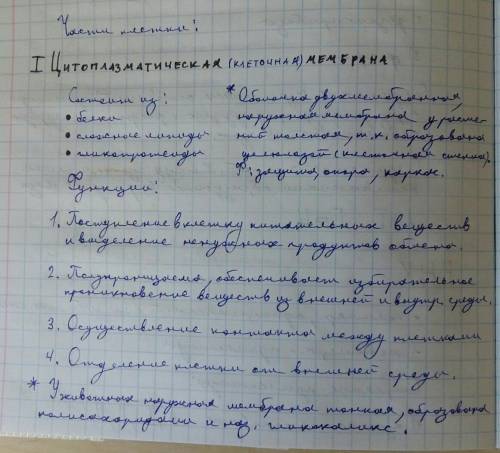 Части клетки:
I Цитоплазматическая (клеточная) мембрана
Состоит из:
• белки
• сложные липиды
• гликопротеиды
* Оболочка двухмембранная,
наружная мембрана у расте-
ний толстая, т.к. образована
целлюлозой (клеточная стенка).
Ф: защита, опора, каркас.
Функции:
1. Поступление в клетку питательных веществ
и выделение ненужных продуктов обмена.
2. Полупроницаема, обеспечивает избирательное
проникновение веществ из внешней и внутр. среды.
3. Осуществление контакта между клетками
4. Отделение клетки от внешней среды.
* У животных наружная мембрана тонкая, образована
полисахаридами и наз. гликокаликс.